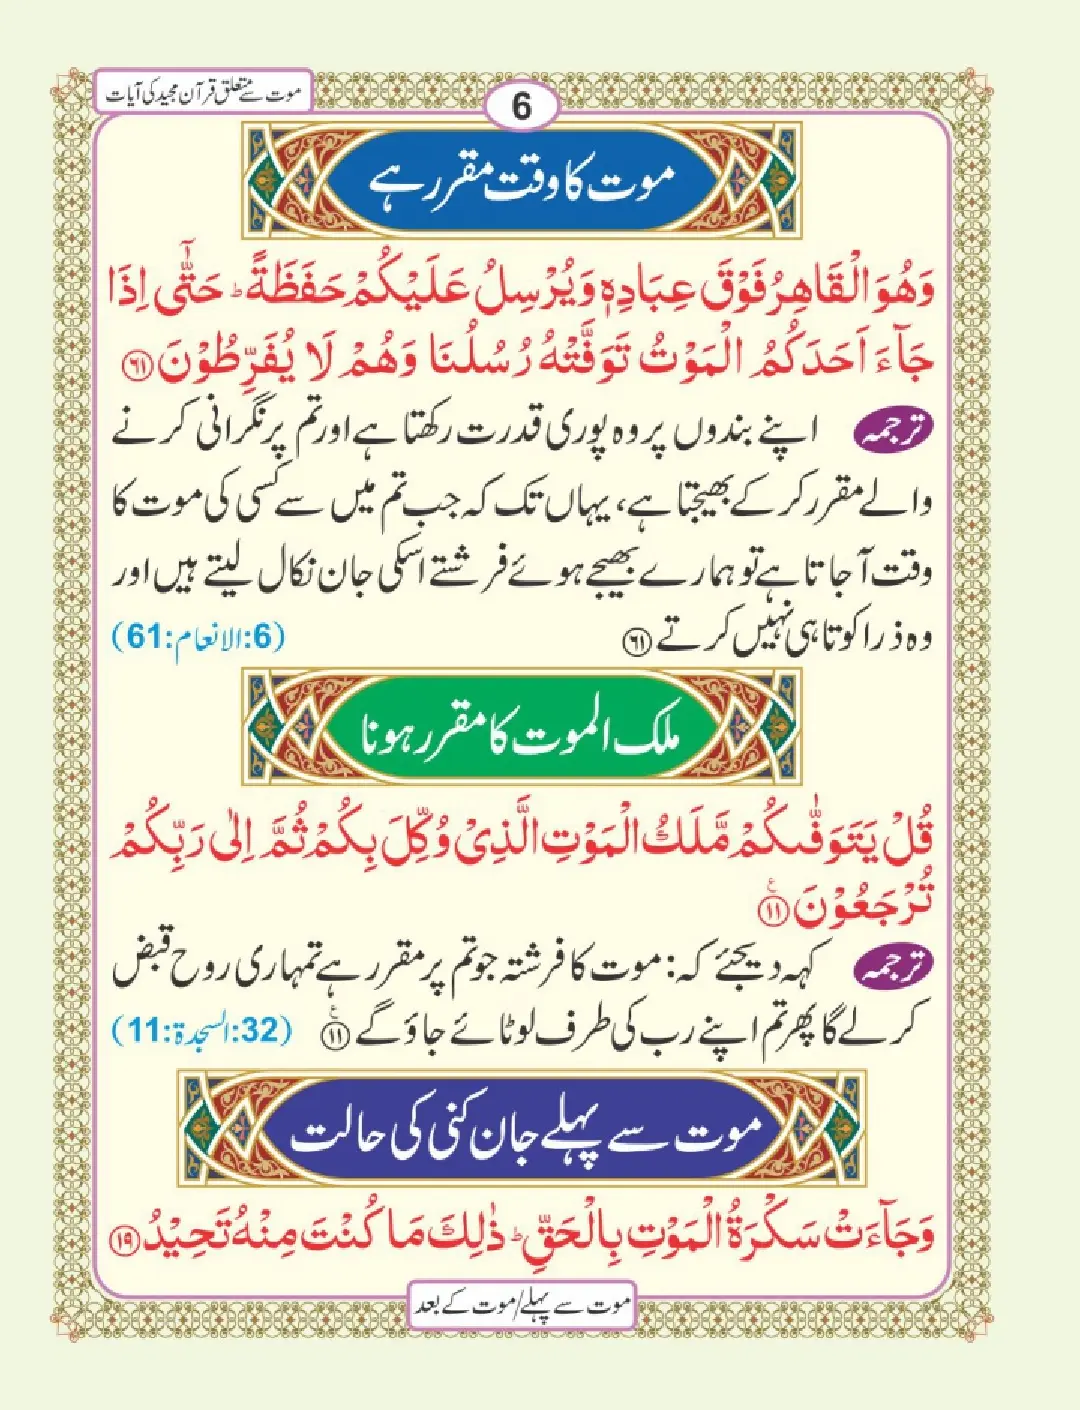 موت سے متعلق قرآن مجید کی آیات
6
موت کا وقت مقرر ہے
وَهُوَ الْقَاهِرُ فَوْقَ عِبَادِهٖ وَيُرْسِلُ عَلَيْكُمْ حَفَظَةً ؕ حَتّٰٓى اِذَا
جَآءَ اَحَدَكُمُ الْمَوْتُ تَوَفَّتْهُ رُسُلُنَا وَهُمْ لَا يُفَرِّطُوْنَ ﴿۶۱﴾
ترجمہ اپنے بندوں پر وہ پوری قدرت رکھتا ہے اور تم پر نگرانی کرنے
والے مقرر کر کے بھیجتا ہے، یہاں تک کہ جب تم میں سے کسی کی موت کا
وقت آ جاتا ہے تو ہمارے بھیجے ہوئے فرشتے اسکی جان نکال لیتے ہیں اور
وہ ذرا کوتاہی نہیں کرتے ﴿۶۱﴾ (6:الانعام:61)
ملک الموت کا مقرر ہونا
قُلْ يَتَوَفّٰىكُمْ مَّلَكُ الْمَوْتِ الَّذِىْ وُكِّلَ بِكُمْ ثُمَّ اِلٰى رَبِّكُمْ
تُرْجَعُوْنَ ﴿۱۱﴾ ع
ترجمہ کہہ دیجئے کہ: موت کا فرشتہ جو تم پر مقرر ہے تمہاری روح قبض
کر لے گا پھر تم اپنے رب کی طرف لوٹائے جاؤ گے ﴿۱۱﴾ ع (32:السجدۃ:11)
موت سے پہلے جان کنی کی حالت
وَجَآءَتْ سَكْرَةُ الْمَوْتِ بِالْحَقِّ ؕ ذٰلِكَ مَا كُنْتَ مِنْهُ تَحِيْدُ ﴿۱۹﴾
موت سے پہلے/موت کے بعد